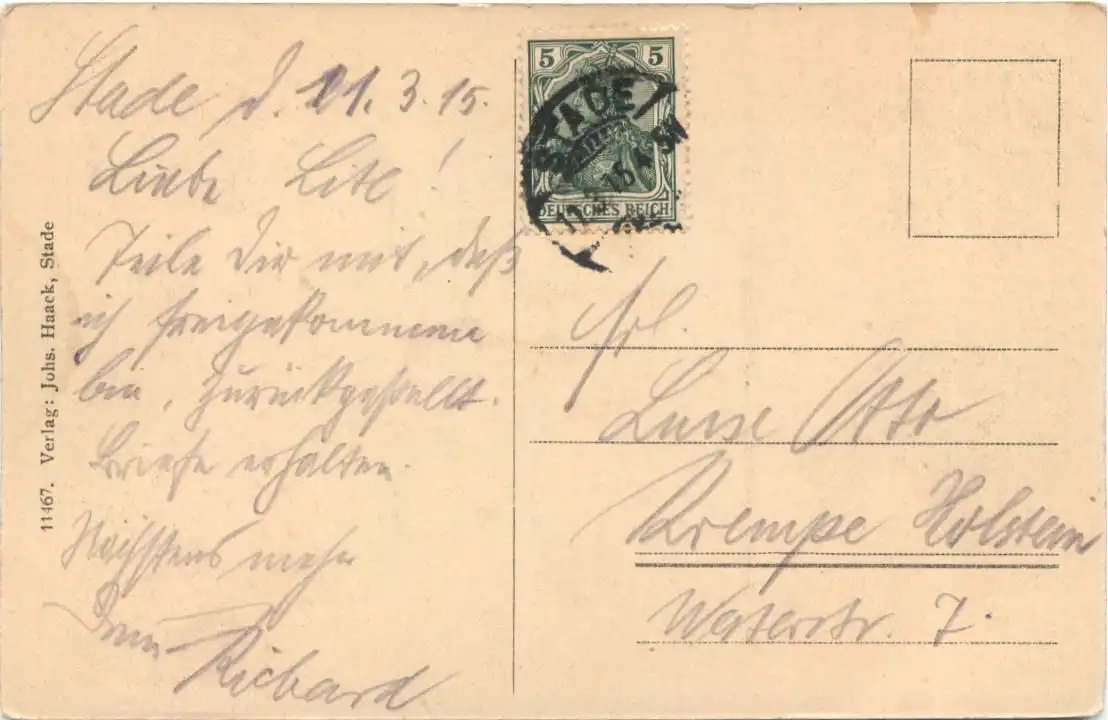 Stade d. 11. 3. 15.
Liebe Lise!
Teile Dir mit, daß
ich freigekommen
bin, zurückgestellt.
Briefe erhalten.
Nächstens mehr
Dein Richard
11467. Verlag: Johs. Haack, Stade
5 5
STADE
11.3.15
DEUTSCHES REICH
Frl.
Luise Otto
Krempe Holstein
Waterstr. 7.